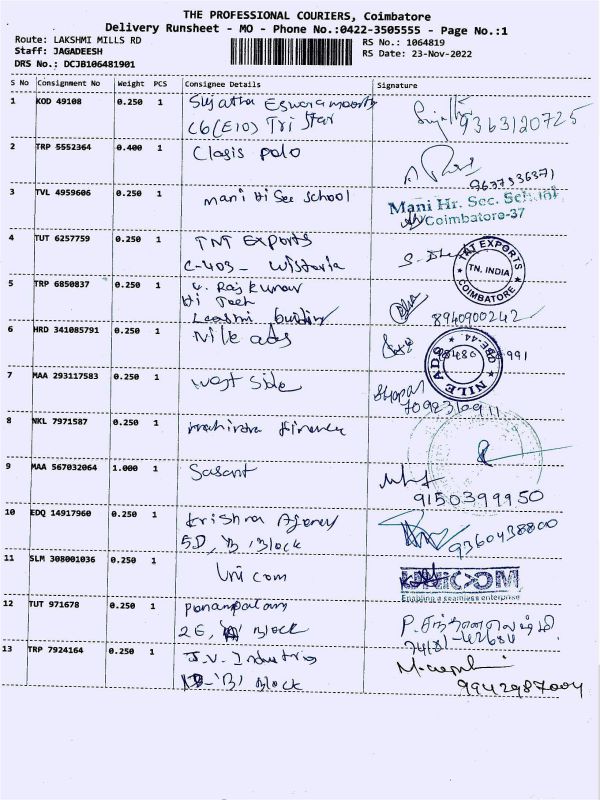 THE PROFESSIONAL COURIERS, Coimbatore
Delivery Runsheet - MO - Phone No.:0422-3505555 - Page No.:1
Route: LAKSHMI MILLS RD
RS No.: 1064819
Staff: JAGADEESH
RS Date: 23-Nov-2022
DRS No.: DCJB106481901
S No Consignment No Weight PCS Consignee Details Signature
1 KOD 49108 0.250 1 Sujatha Eswaramoorthy
C6(E10) Tri Star 9363120725
2 TRP 5552364 0.400 1 Clasis polo
9637536371
3 TVL 4959606 0.250 1 mani Hi Sec School Mani Hr. Sec. School
Coimbatore-37
4 TUT 6257759 0.250 1 TNT Exports
C-403- Wisteria
TNT EXPORTS
TN. INDIA
COIMBATORE
5 TRP 6850837 0.250 1 Rajkumar
Hi Tech
Laxmi building 8940900242
6 HRD 341085791 0.250 1 Nile ads
NILE ADS
CBE-44
7 MAA 293117583 0.250 1 West Side
8 NKL 7971587 0.250 1 mahindra finance
9 MAA 567032064 1.000 1 Sasant
9150399950
10 EDQ 14917960 0.250 1 Krishna Agency
5D, 'B' Block 9360438800
11 SLM 308001036 0.250 1 Uni com UNICOM
Enabling a seamless enterprise
12 TUT 971678 0.250 1
2E, 'A' Block
13 TRP 7924164 0.250 1 J.V. Industris
'B' Block 9942987004